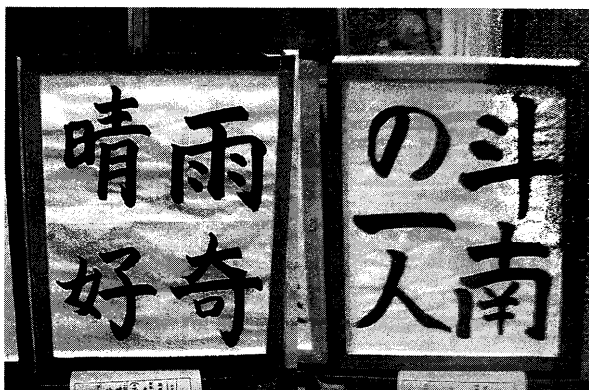 斗南
の一人
雨奇
晴好